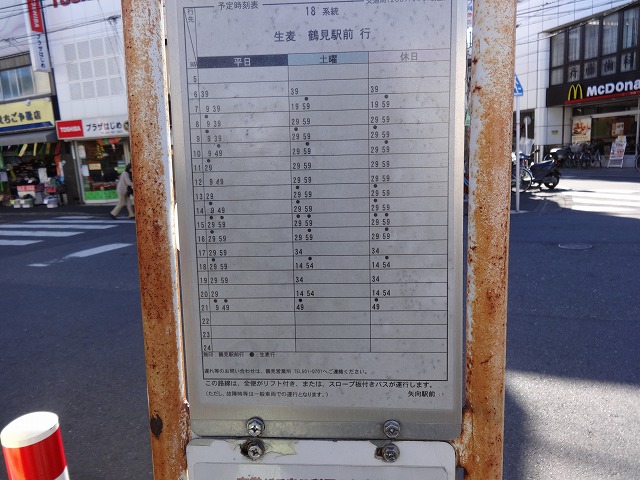 予定時刻表
18 系統
生麦 鶴見駅前 行
行先
平日 土曜 休日
5
6 39 39 39
7 9 39 19 59 19 59
8 9 39 29 59 29 59
9 9 39 29 59 29 59
10 9 49 29 59 29 59
11 29 29 59 29 59
12 9 49 29 59 29 59
13 29 29 59 29 59
14 9 49 29 59 29 59
15 29 59 29 59 29 59
16 29 59 29 59 29 59
17 29 34 34
18 29 59 14 54 14 54
19 29 59 34 34
20 29 14 54 14 54
21 9 49 49 49
22
23
24
無印 鶴見駅前行 ●生麦行
遅れ等のお問い合わせは、鶴見営業所 へご連絡ください。
この路線は、全便がリフト付き、または、スロープ板付きバスが運行します。
(ただし、故障時等は一般車両での運行となります。)
矢向駅前
McDona
TOSHIBA
プラザはじめ